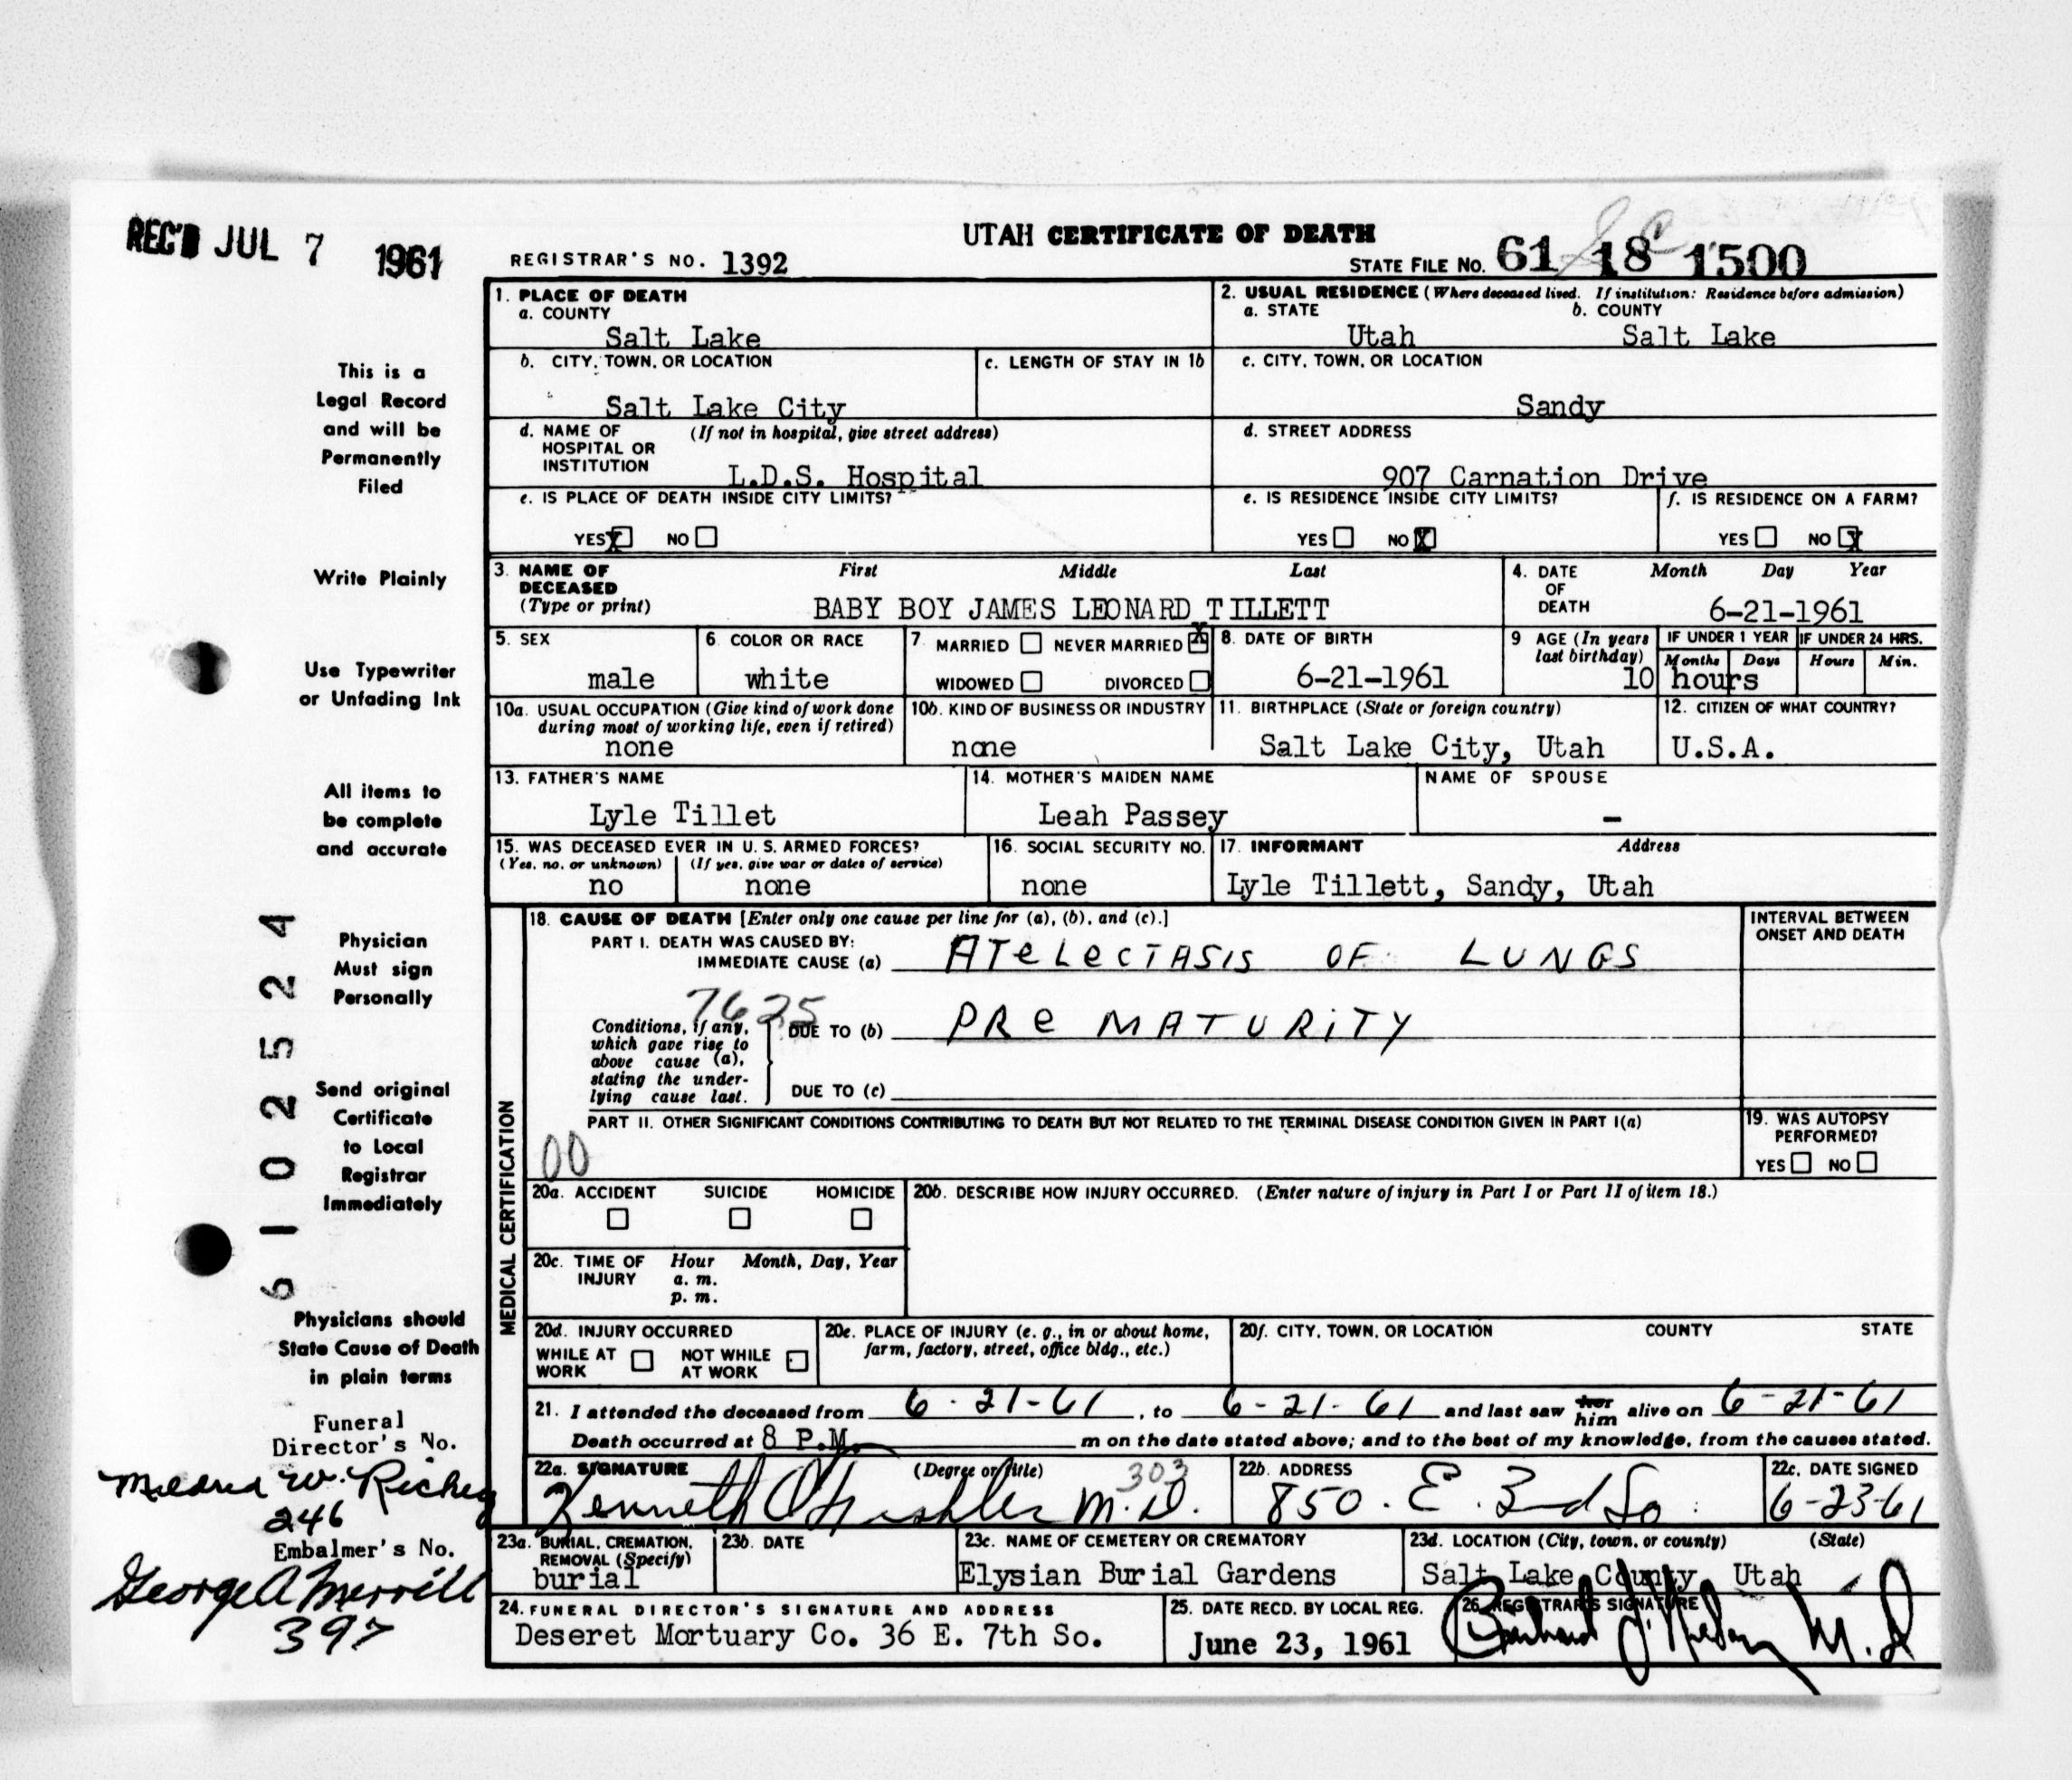 REC'D JUL 7 1961
UTAH CERTIFICATE OF DEATH
REGISTRAR'S NO. 1392
STATE FILE NO. 61 18 1500
1. PLACE OF DEATH
a. COUNTY
Salt Lake
2. USUAL RESIDENCE (Where deceased lived. If institution: Residence before admission)
a. STATE b. COUNTY
Utah Salt Lake
b. CITY, TOWN, OR LOCATION
Salt Lake City
c. LENGTH OF STAY IN 1b
c. CITY, TOWN, OR LOCATION
Sandy
d. NAME OF (If not in hospital, give street address)
HOSPITAL OR
INSTITUTION
L.D.S. Hospital
d. STREET ADDRESS
907 Carnation Drive
e. IS PLACE OF DEATH INSIDE CITY LIMITS?
YES X NO
e. IS RESIDENCE INSIDE CITY LIMITS?
YES NO X
f. IS RESIDENCE ON A FARM?
YES NO X
3. NAME OF First Middle Last
DECEASED
(Type or print)
BABY BOY JAMES LEONARD TILLETT
4. DATE Month Day Year
OF
DEATH
6-21-1961
5. SEX
male
6. COLOR OR RACE
white
7. MARRIED NEVER MARRIED X
WIDOWED DIVORCED
8. DATE OF BIRTH
6-21-1961
9 AGE (In years
last birthday)
IF UNDER 1 YEAR IF UNDER 24 HRS.
Months Days Hours Min.
10 hours
10a. USUAL OCCUPATION (Give kind of work done
during most of working life, even if retired)
none
10b. KIND OF BUSINESS OR INDUSTRY
none
11. BIRTHPLACE (State or foreign country)
Salt Lake City, Utah
12. CITIZEN OF WHAT COUNTRY?
U.S.A.
13. FATHER'S NAME
Lyle Tillet
14. MOTHER'S MAIDEN NAME
Leah Passey
NAME OF SPOUSE
-
15. WAS DECEASED EVER IN U. S. ARMED FORCES?
(Yes, no, or unknown) (If yes, give war or dates of service)
no none
16. SOCIAL SECURITY NO.
none
17. INFORMANT Address
Lyle Tillett, Sandy, Utah
MEDICAL CERTIFICATION
18. CAUSE OF DEATH [Enter only one cause per line for (a), (b), and (c).]
INTERVAL BETWEEN
ONSET AND DEATH
PART I. DEATH WAS CAUSED BY:
IMMEDIATE CAUSE (a) ATeLecTASIS OF LUNGS
7625
Conditions, if any,
which gave rise to
above cause (a),
stating the under-
lying cause last.
DUE TO (b) PRe MATURiTY
DUE TO (c)
PART II. OTHER SIGNIFICANT CONDITIONS CONTRIBUTING TO DEATH BUT NOT RELATED TO THE TERMINAL DISEASE CONDITION GIVEN IN PART I(a)
00
19. WAS AUTOPSY
PERFORMED?
YES NO
20a. ACCIDENT SUICIDE HOMICIDE
20b. DESCRIBE HOW INJURY OCCURRED. (Enter nature of injury in Part I or Part II of item 18.)
20c. TIME OF Hour Month, Day, Year
INJURY a. m.
p. m.
20d. INJURY OCCURRED
WHILE AT NOT WHILE
WORK AT WORK
20e. PLACE OF INJURY (e. g., in or about home,
farm, factory, street, office bldg., etc.)
20f. CITY, TOWN, OR LOCATION COUNTY STATE
21. I attended the deceased from 6-21-61, to 6-21-61 and last saw her him alive on 6-21-61
Death occurred at 8 P.M. m on the date stated above; and to the best of my knowledge, from the causes stated.
22a. SIGNATURE (Degree or title) 303
Kenneth M.D.
22b. ADDRESS
850. E. 2nd So.
22c. DATE SIGNED
6-23-61
23a. BURIAL, CREMATION,
REMOVAL (Specify)
burial
23b. DATE
23c. NAME OF CEMETERY OR CREMATORY
Elysian Burial Gardens
23d. LOCATION (City, town, or county) (State)
Salt Lake County, Utah
24. FUNERAL DIRECTOR'S SIGNATURE AND ADDRESS
Deseret Mortuary Co. 36 E. 7th So.
25. DATE RECD. BY LOCAL REG.
June 23, 1961
26. REGISTRAR'S SIGNATURE
M.D
This is a
Legal Record
and will be
Permanently
Filed
Write Plainly
Use Typewriter
or Unfading Ink
All items to
be complete
and accurate
Physician
Must sign
Personally
Send original
Certificate
to Local
Registrar
Immediately
Physicians should
State Cause of Death
in plain terms
61 02524
Funeral
Director's No.
Mildred W. Richey
246
Embalmer's No.
George A Merrill
397